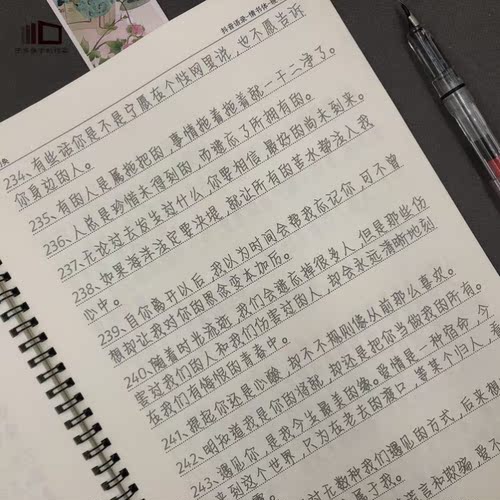 抖音语录-情书体-
234、有些话你是不是宁愿在个性网里说,也不愿告诉
你身边的人。
235、有的人是属拖把的,事情拖着拖着都一干二净了。
236、人总是珍惜未得到的,而遗忘了所拥有的。
237、无论过去发生过什么,你要相信,最好的尚未到来。
238、如果海洋注定要决堤,就让所有的苦水都注入我
心中。
239、自你离开以后,我以为时间会帮我忘记你,可不曾
想却让我对你的思念变本加厉。
240、随着时光流逝,我们会遗忘掉很多人,但是那些伤
害过我们的人和我们伤害过的人,却会永远清晰地刻
在我们有悔恨的青春中。
241、提起你还是心酸,却不不规则像从前那么喜欢。
242、明知道我是你的将就,却还是把你当做我的所有。
243、遇见你,是我今生最美的缘。爱情是一种宿命,今
来到这个世界,只为在老去的渡口,等某个归人,
无数种我们遇见的方式,后来想
属于我。
言和欺骗,岂不